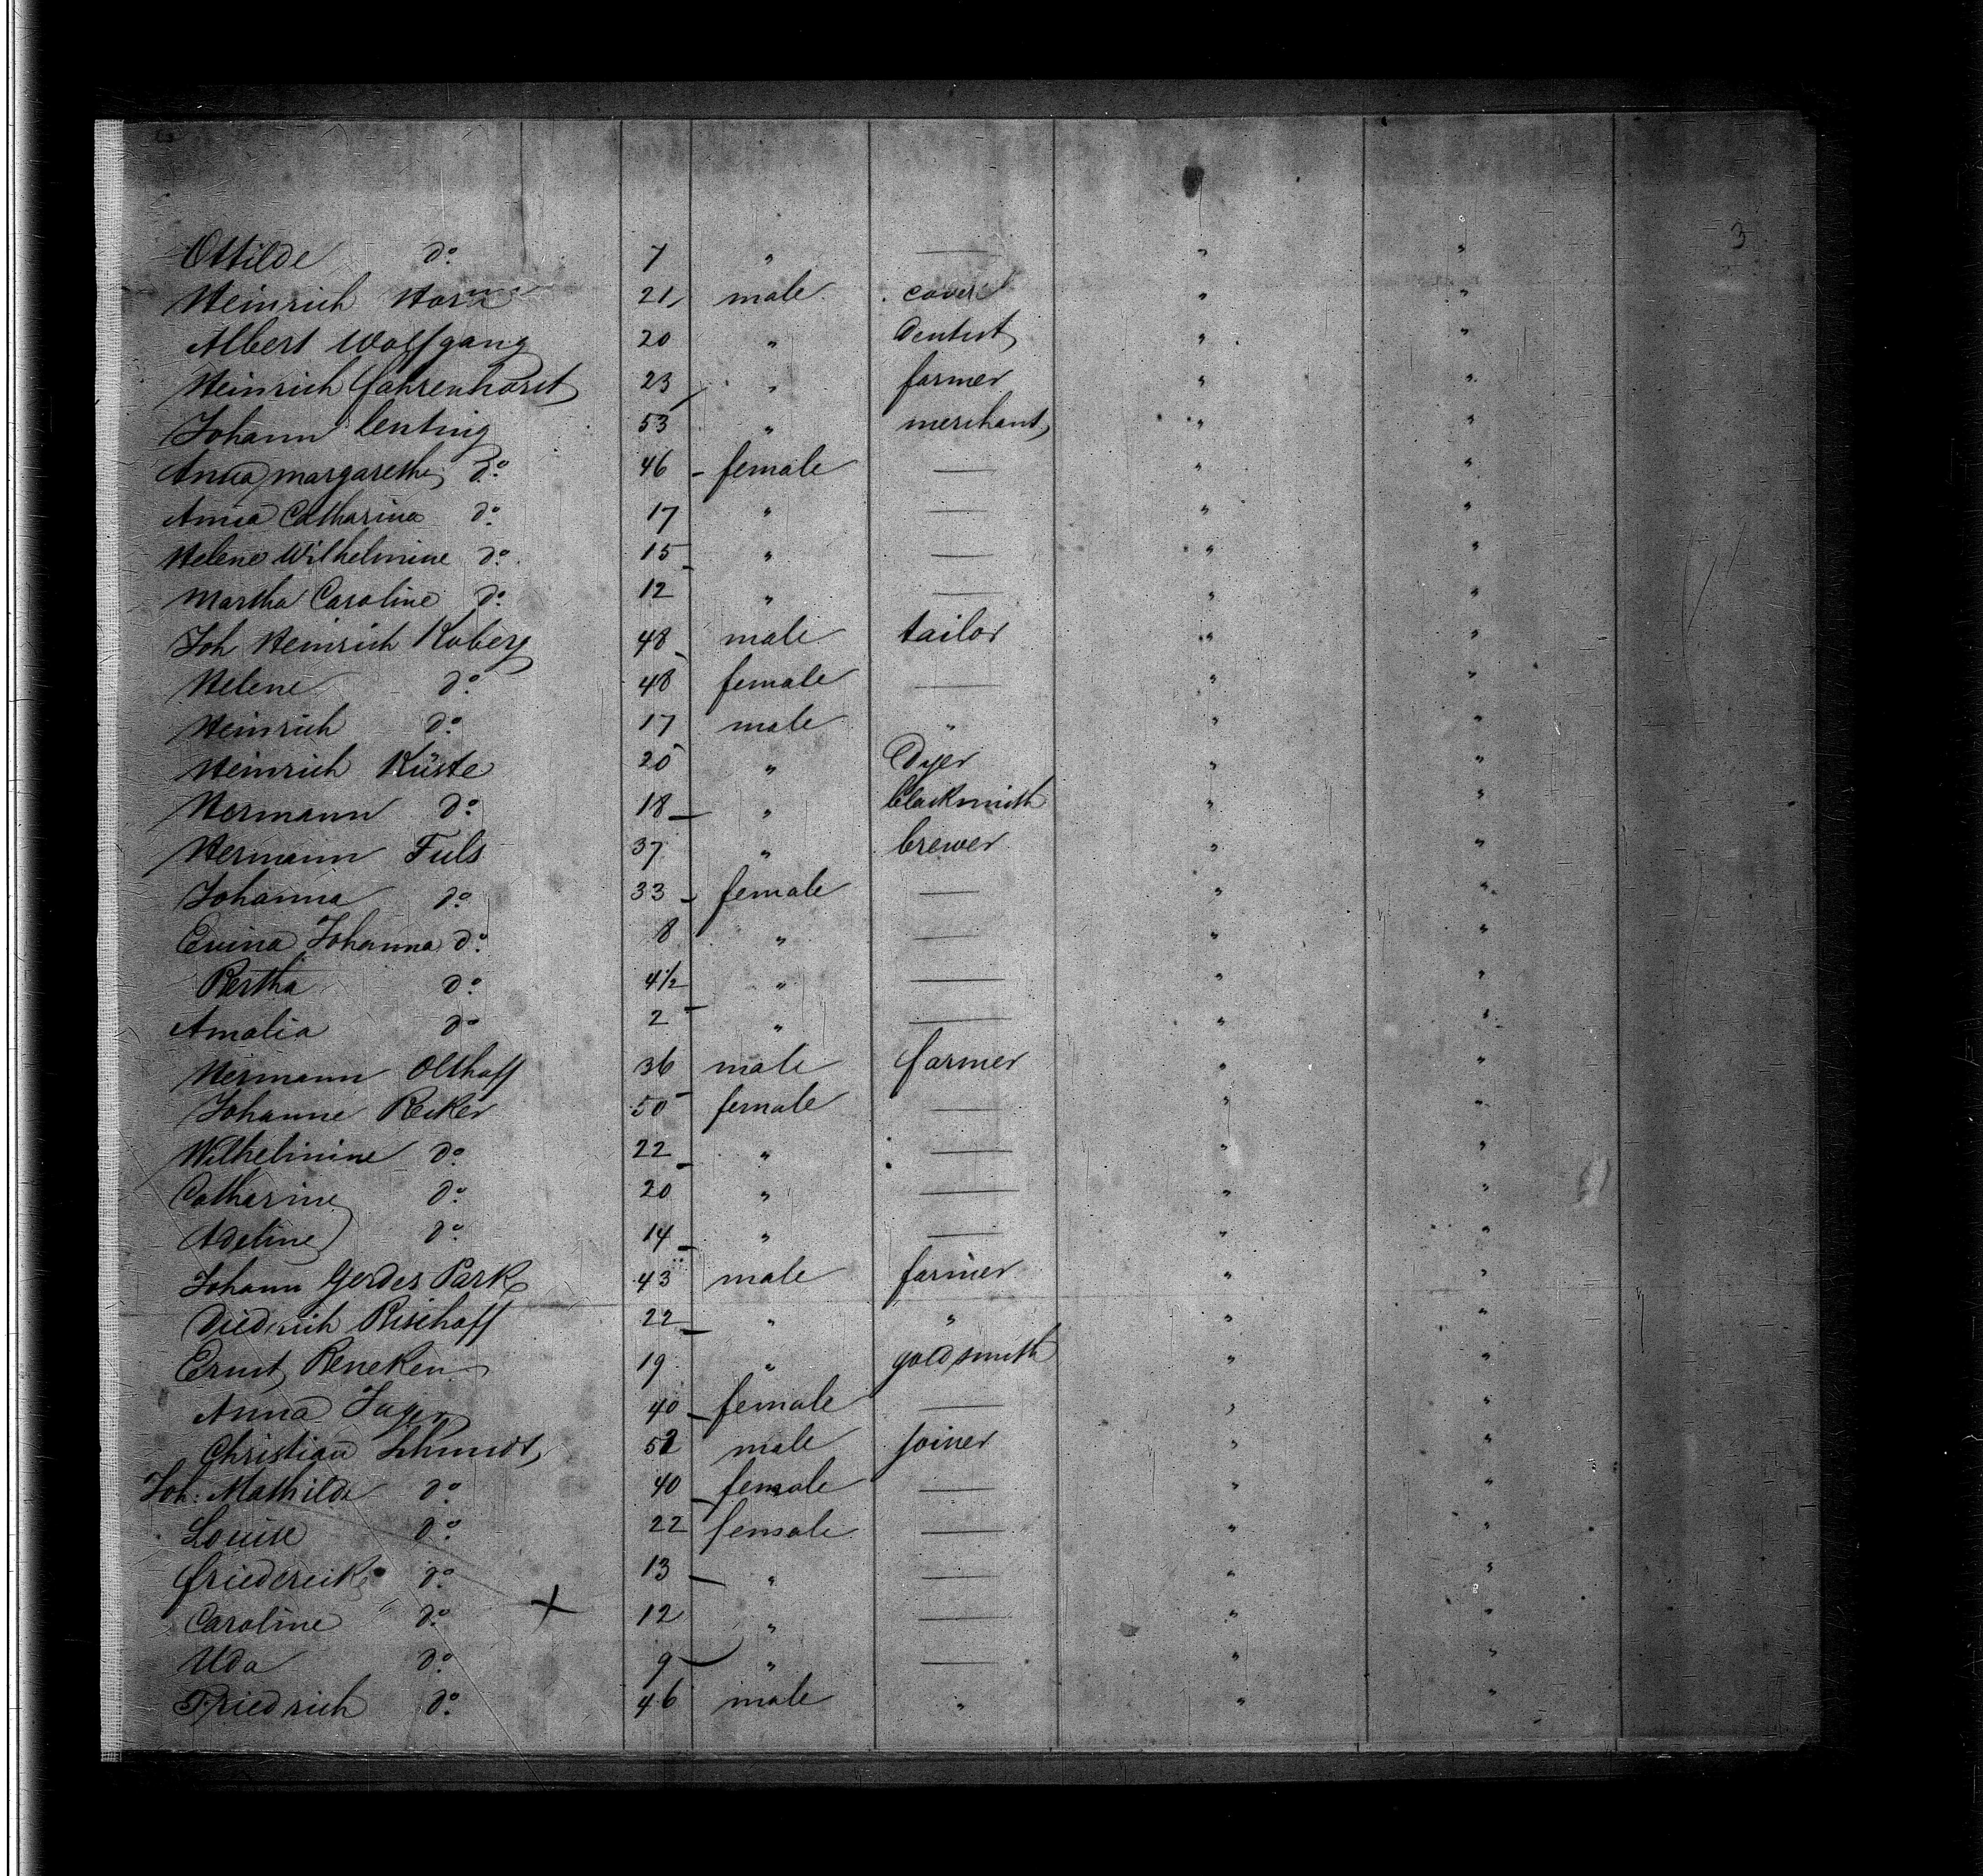 3
Ottilde do 7 " — " "
Heinrich Horn 21 male " "
Albert Wolfgang 20 " Dentist " "
Heinrich Fahrenhorst 23 " farmer " "
Johann Centing 53 " merchant " "
Anna margarethe do 46 female — " "
Anna Catharina do 17 " — " "
Helene Wilhelmine do 15 " — " "
Martha Caroline do 12 " — " "
Joh Heinrich Koberg 48 male tailor " "
Helene do 48 female — " "
Heinrich do 17 male " " "
Heinrich Küste 20 " Dyer " "
Hermann do 18 " blacksmith " "
Hermann Fuls 37 " brewer " "
Johanna do 33 female — " "
Johanna do 8 " — " "
Bertha do 4½ " — " "
Amalia do 2 " — " "
Hermann Olthoff 36 male farmer " "
Johanne Reker 50 female — " "
Wilhelmine do 22 " — " "
Catharine do 20 " — " "
Adeline do 14 " — " "
Johann Gerdes Park 43 male farmer " "
Diedrich Bischoff 22 " " " "
Ernst Reneken 19 " goldsmith " "
Anna Jager 40 female — " "
Christian Schmidt 52 male joiner " "
Joh: Mathilde do 40 female — " "
Louise do 22 female — " "
Friedereike do 13 " — " "
Caroline do X 12 " — " "
Uda do 9 " — " "
Friedrich do 46 male " " "